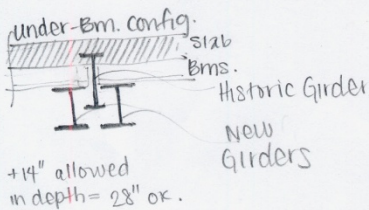 under-Bm. config.
Slab
Bms.
Historic Girder
New
Girders
+14" allowed
in depth = 28" ok.